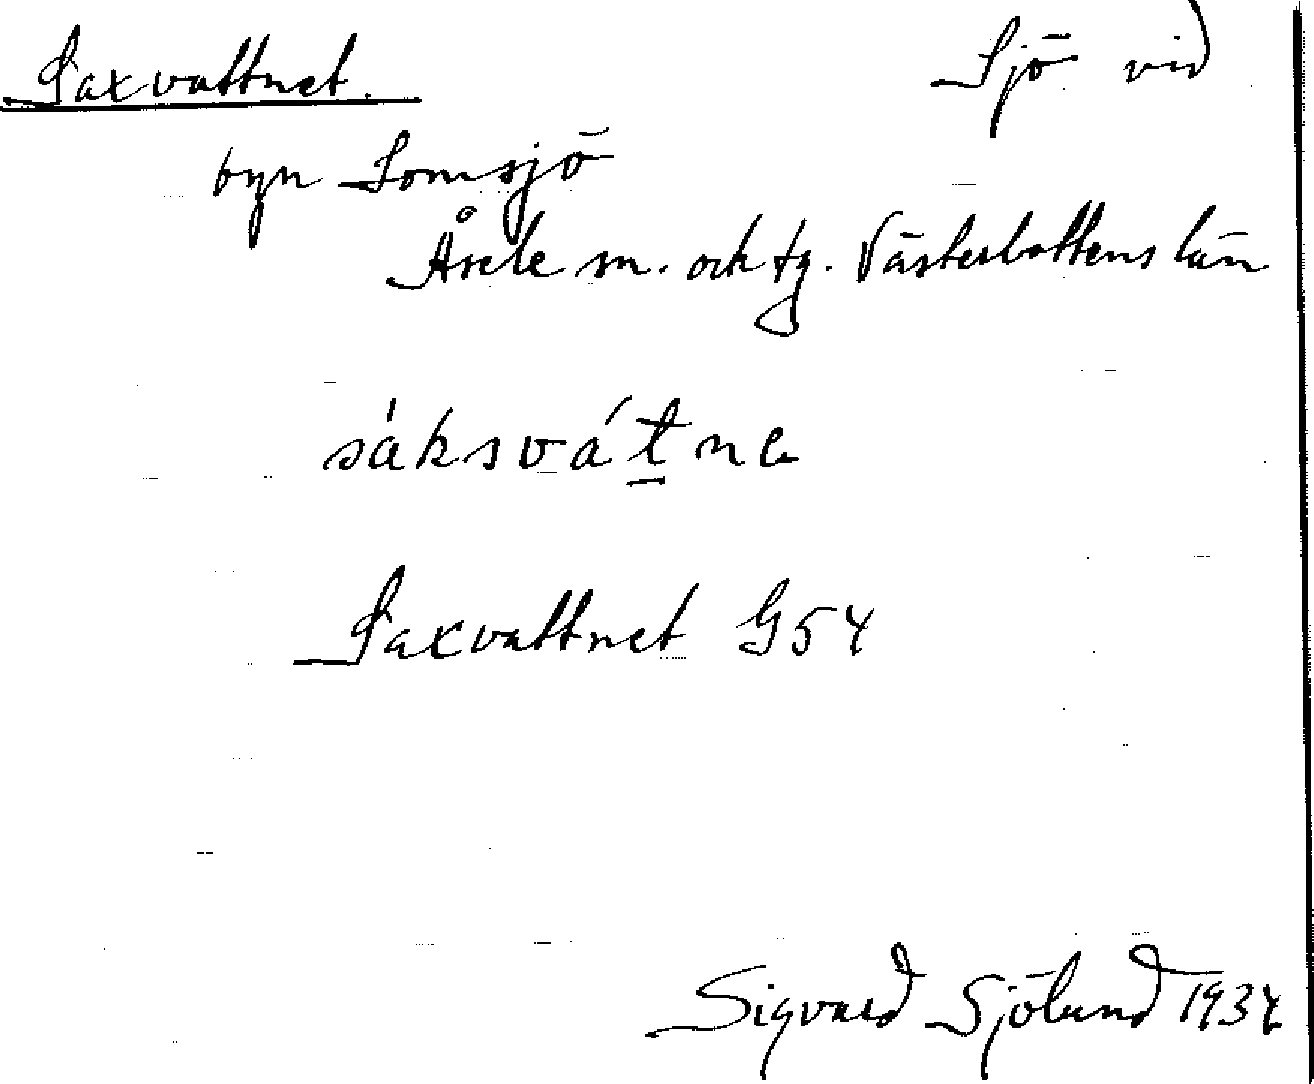 Saxvattnet. Sjö vid
byn Lomsjö
Åsele sn. och tg. Västerbottens län
sáksvát̲ne
Saxvattnet G54
Sigvard Sjölund 1934